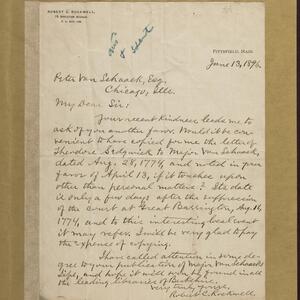 ROBERT C. ROCKWELL
Pittsfield, Mass.
June 13, 1896.
Peter Van Schaack, Esq.
Chicago, Ills.
My Dear Sir:
Your recent kindness leads me to
ask of you another favor. Would it be con-
venient to have copied for me the letter of
Theodore Sedgwick to Major Van Schaack,
dated Aug. 28, 1774, and noted in your
favor of April 13, if it touches upon
other than personal matters? Its date
is only a few days after the suppression
of the Court at Great Barrington, Aug. 16,
1774, and to this interesting local event
it may refer. I will be very glad to pay
the expense of copying.
I have called attention in some de-
gree to your publication of Major Van Schaack's
Life, and hope it will be found in all
the leading libraries of Berkshire.
Very truly yours,
Robert C. Rockwell